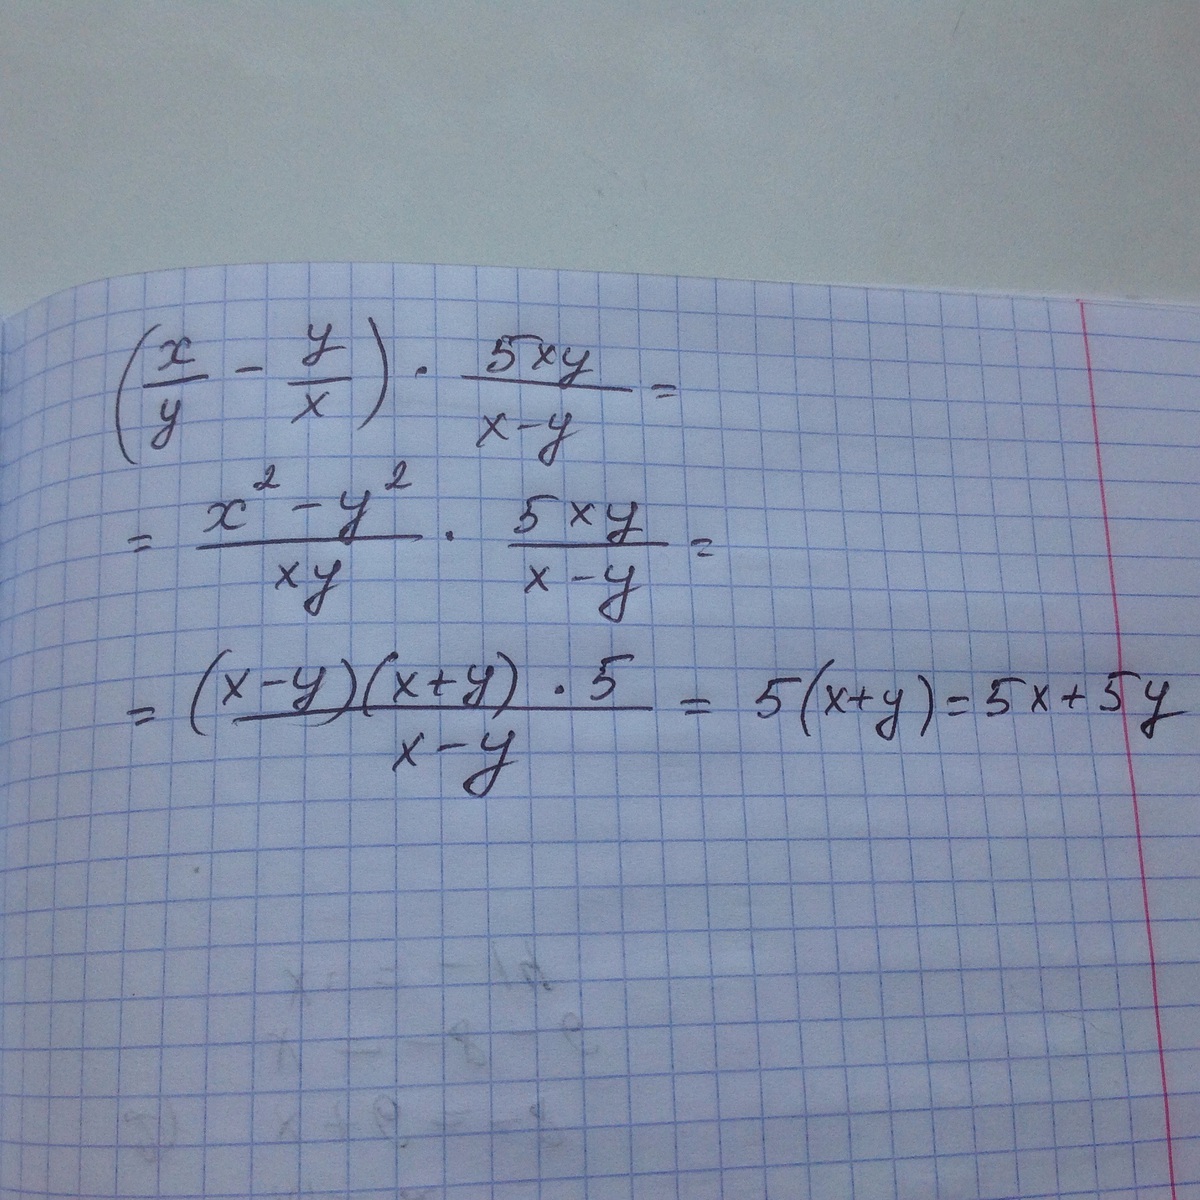 (x/y - y/x) · 5xy/(x-y) =
= (x² - y²)/(xy) · 5xy/(x-y) =
= ((x-y)(x+y) · 5)/(x-y) = 5(x+y) = 5x+5y